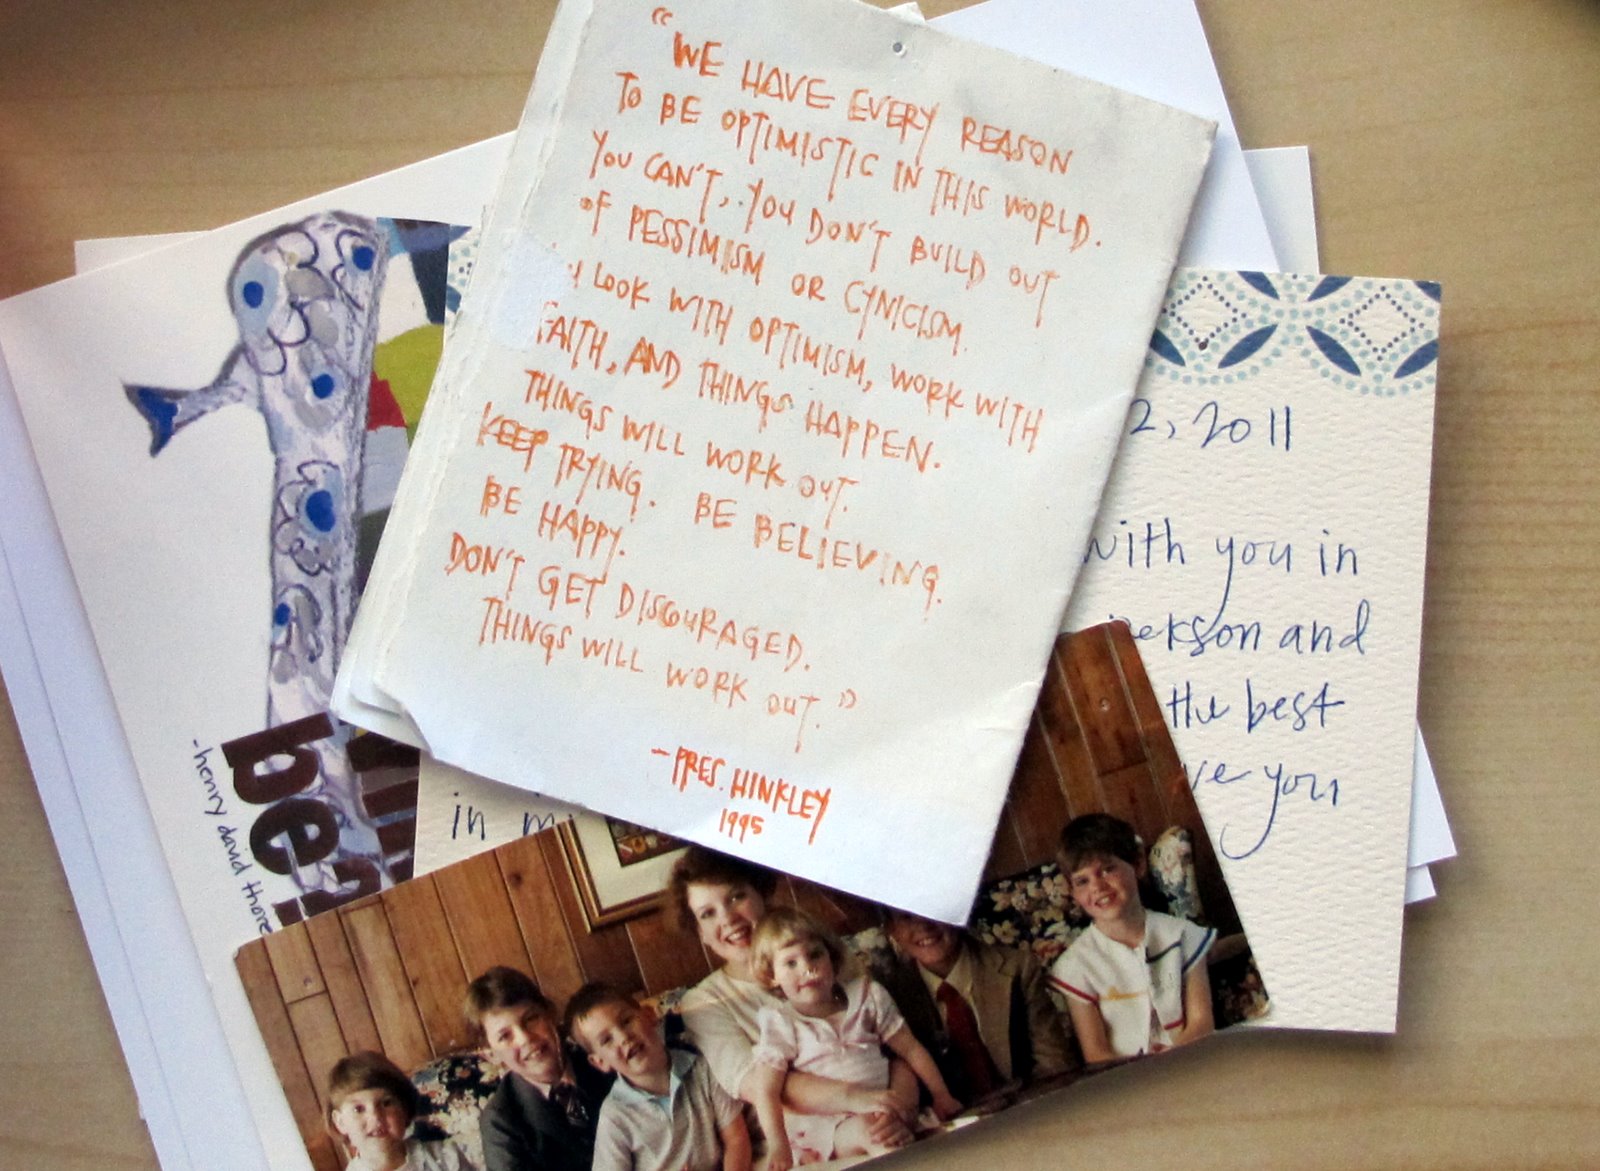 "WE HAVE EVERY REASON
TO BE OPTIMISTIC IN THIS WORLD.
YOU CAN'T, YOU DON'T BUILD OUT
OF PESSIMISM OR CYNICISM.
LOOK WITH OPTIMISM, WORK WITH
FAITH, AND THINGS HAPPEN.
THINGS WILL WORK OUT.
KEEP TRYING. BE BELIEVING.
BE HAPPY.
DON'T GET DISCOURAGED.
THINGS WILL WORK OUT."
-PRES. HINKLEY
1995
2, 2011
with you in
and
the best
you
in
be
-henry david thore